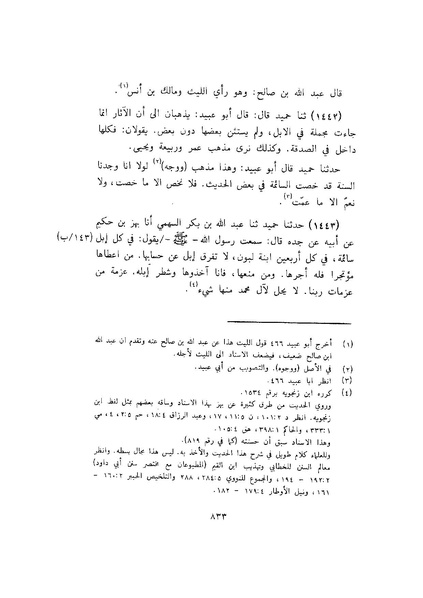 قال عبد الله بن صالح: وهو رأي الليث ومالك بن أنس(١).
(١٤٤٢) ثنا حميد قال: قال أبو عبيد: يذهبان الى أن الآثار انما
جاءت مجملة في الابل، ولم يستثن بعضها دون بعض. يقولان: فكلها
داخل في الصدقة. وكذلك نرى مذهب عمر وربيعة ويحيى.
حدثنا حميد قال أبو عبيد: وهذا مذهب (ووجه)(٢) لولا انا وجدنا
السنة قد خصت السائمة في بعض الحديث. فلا نخص الا ما خصت، ولا
نعمّ الا ما عمّت(٣).
(١٤٤٣) حدثنا حميد ثنا عبد الله بن بكر السهمي أنا بهز بن حكيم
عن أبيه عن جده قال: سمعت رسول الله – ﷺ –/يقول: في كل إبل (١٤٣/ب)
سائمة، في كل أربعين ابنة لبون، لا تفرق إبل عن حسابها. من اعطاها
مؤتجرا فله أجرها. ومن منعها، فانا آخذوها وشطر إبله. عزمة من
عزمات ربنا. لا يحل لآل محمد منها شيء(٤).
(١) أخرج أبو عبيد ٤٦٦ قول الليث هذا عن عبد الله بن صالح عنه وتقدم ان عبد الله
ابن صالح ضعيف، فيضعف الاسناد الى الليث لأجله.
(٢) في الأصل (ووجوه). والتصويب من أبي عبيد.
(٣) انظر ابا عبيد ٤٦٦.
(٤) كرره ابن زنجويه برقم ١٥٣٤.
وروي الحديث من طرق كثيرة عن بهز بهذا الاسناد وساقه بعضهم بمثل لفظ ابن
زنجويه. انظر د ٢:١٠١، ن ٥:١١، ١٧، وعبد الرزاق ٤:١٨، حم ٥:٢، ٤، مي
١:٣٣٣، والحاكم ١:٣٩٨، هق ٤:١٠٥.
وهذا الاسناد سبق أن حسنته (كما في رقم ٨١٩).
وللعلماء كلام طويل في شرح هذا الحديث والأخذ به. ليس هذا مجال بسطه. وانظر
معالم السنن للخطابي وتهذيب ابن القيم (المطبوعان مع مختصر سنن أبي داود)
٢:١٩٢ – ١٩٤، والمجموع للنووي ٥:٢٨٤، ٢٨٨ والتلخيص الحبير ٢:١٦٠ –
١٦١، ونيل الأوطار ٤:١٧٩ – ١٨٢.
٨٣٣